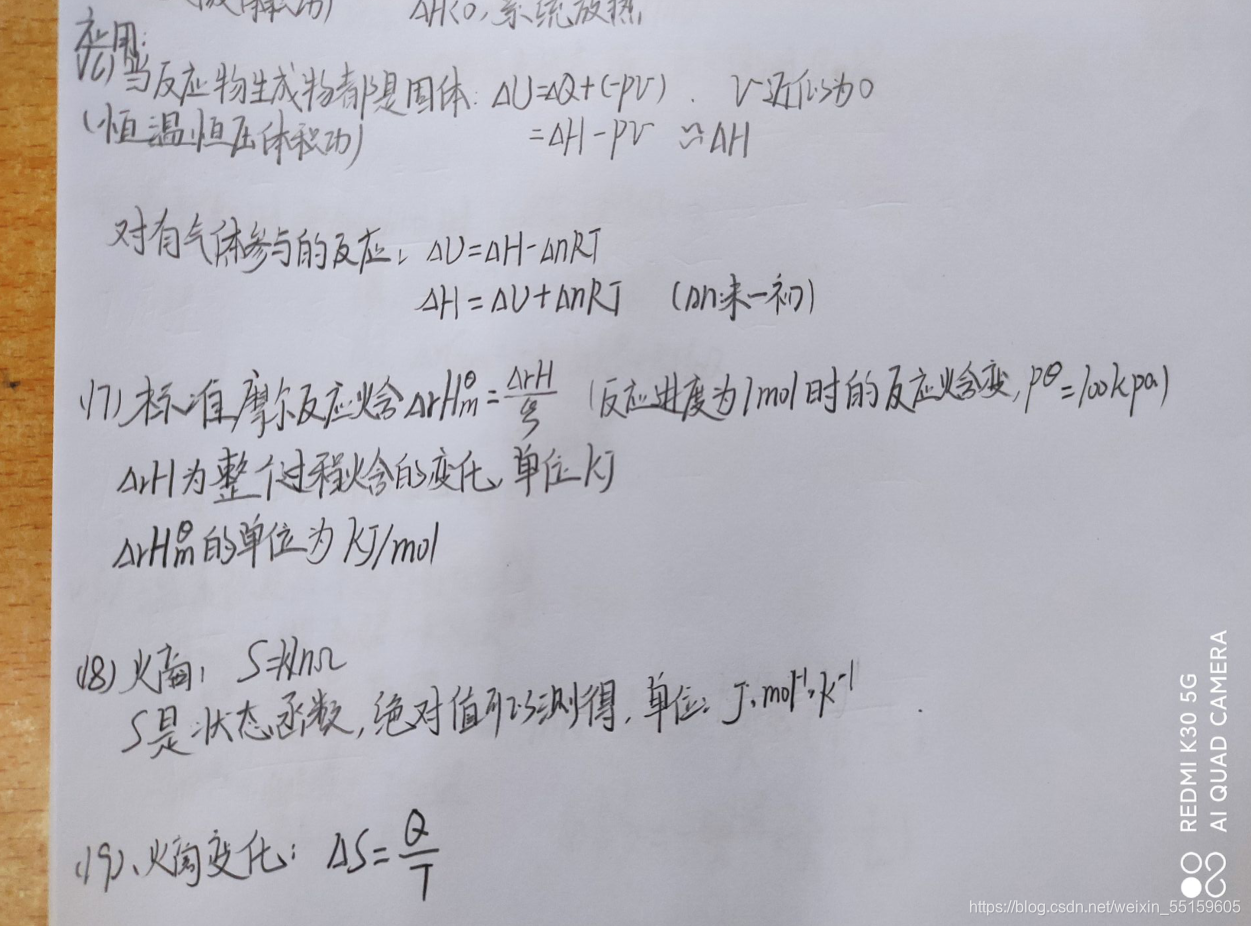 ΔH<0,系统放热
应用:
当反应物生成物都是固体: ΔU=ΔQ+(-pV). V近似为0
(恒温恒压体积功) =ΔH-pV ≈ΔH
对有气体参与的反应: ΔU=ΔH-ΔnRT
ΔH=ΔU+ΔnRT (Δn:末-初)
(17)标准摩尔反应焓ΔrHmθ=ΔrH/ξ (反应进度为1mol时的反应焓变,pθ=100kpa)
ΔrH为整个过程焓的变化,单位kJ
ΔrHmθ的单位为kJ/mol
(18)熵: S=klnΩ
S是状态函数,绝对值可以测得,单位: J·mol⁻¹·k⁻¹
(19)、熵变化: ΔS=Q/T
REDMI K30 5G
AI QUAD CAMERA
https://blog.csdn.net/weixin_55159605